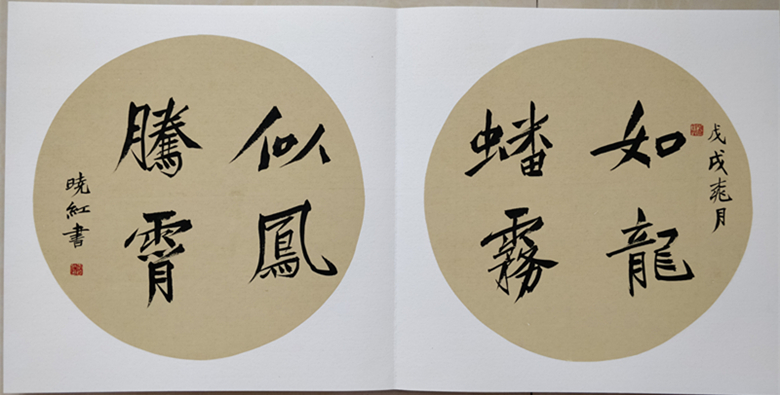 戊戌月
如龍
蟠霧
似鳳
騰霄
曉紅書